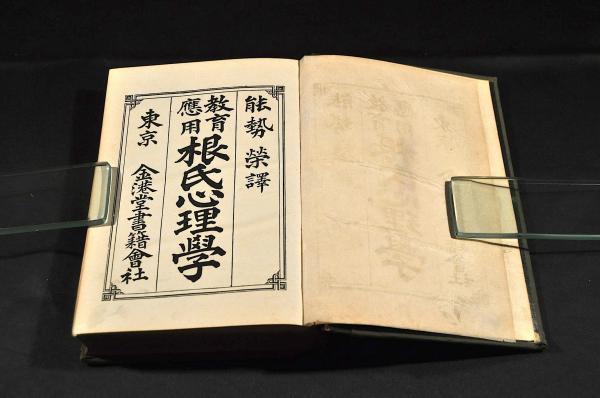 能勢 榮譯
教育
應用
根氏心理學
東京 金港堂書籍會社